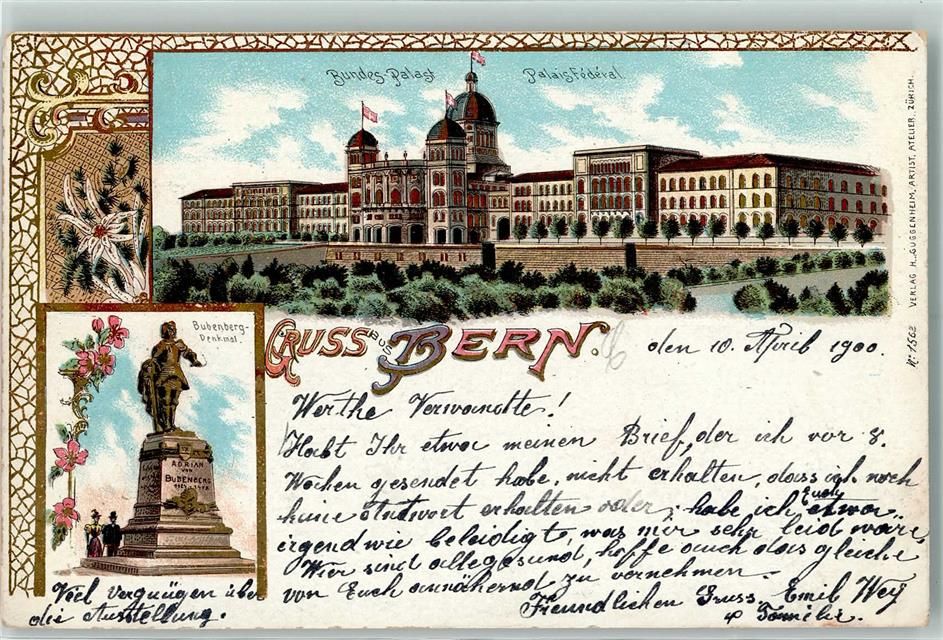 Bundes-Palast Palais Fédéral
VERLAG H. GUGGENHEIM, ARTIST. ATELIER, ZÜRICH.
No 1562
Bubenberg-
Denkmal.
ADRIAN
VON
BUBENBERG
GRUSS AUS BERN.
den 10. April 1900.
Werthe Verwandte!
Habt Ihr etwa meinen Brief, der ich vor 8.
Wochen gesendet habe, nicht erhalten, dass ich noch
keine Antwort erhalten oder habe ich Euch etwa
irgend wie beleidigt, was mir sehr leid wäre,
Wir sind alle gesund, hoffe auch das gleiche
von Euch annähernd zu vernehmen.
Freundlichen Gruss, Emil Wey
& Familie.
Viel vergnügen über
die Ausstellung.